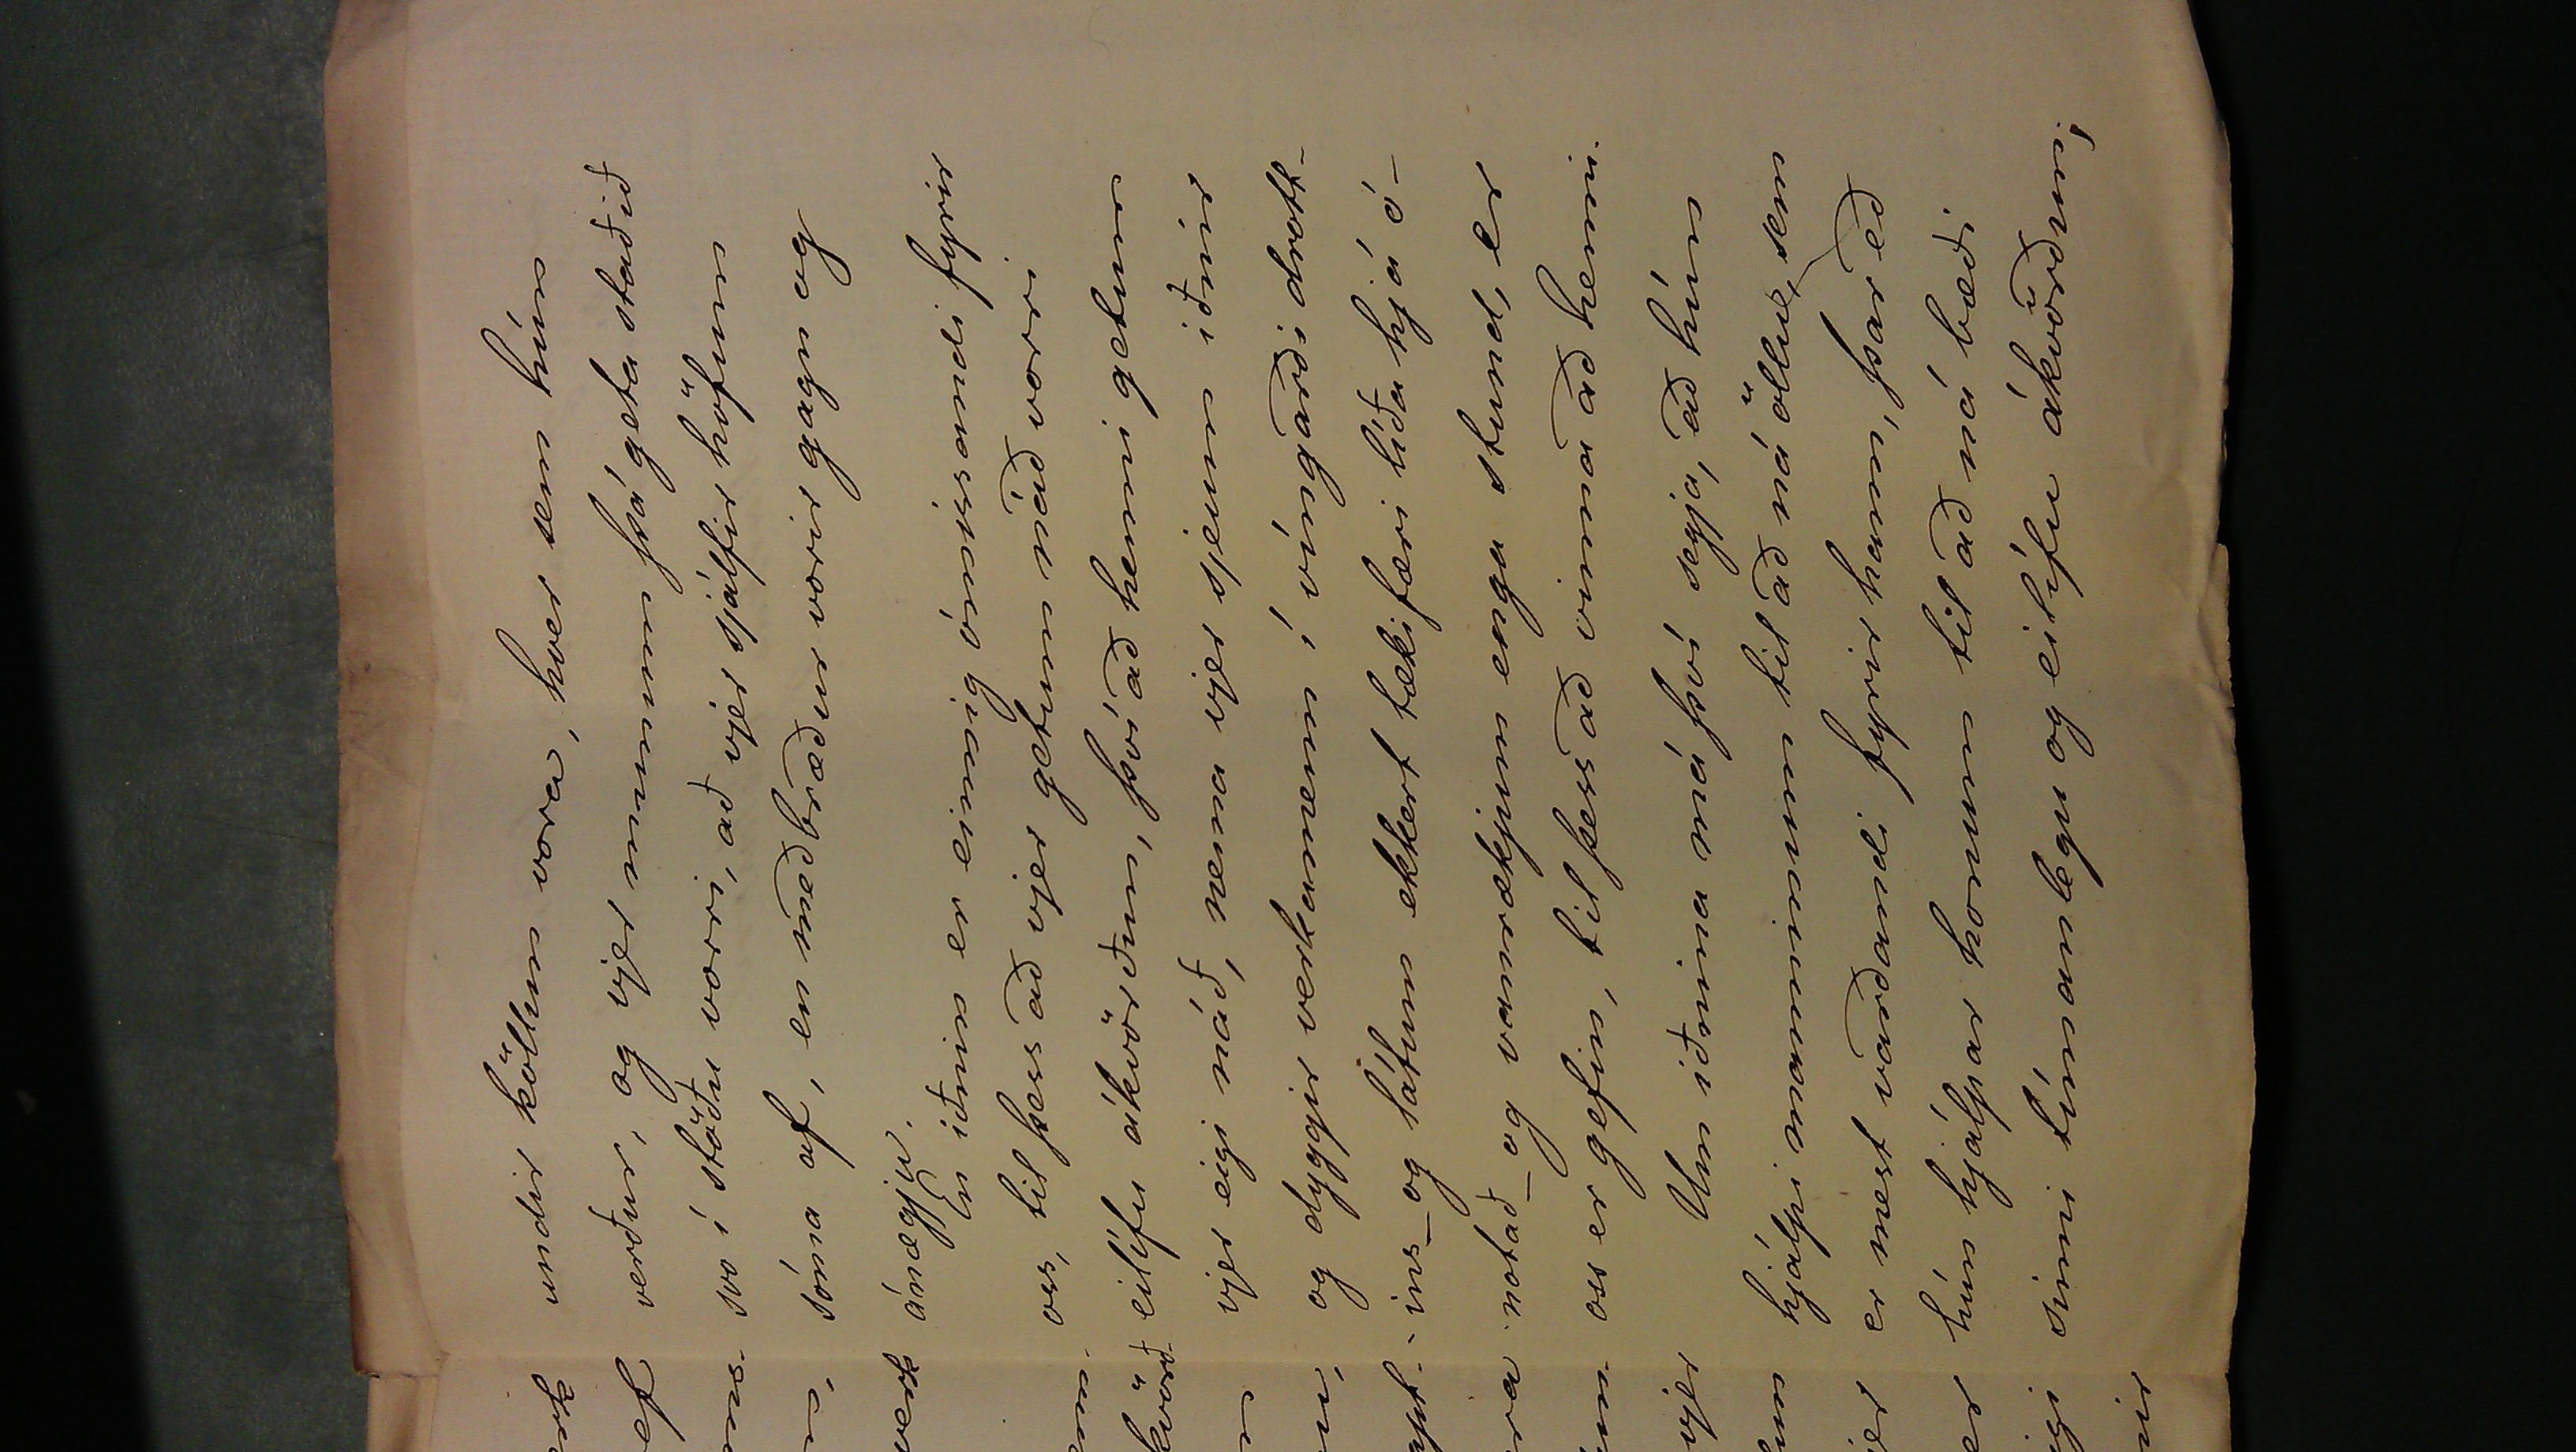 undir köllun vora, hver sem hún
verður, og vjer munum þá geta staðið
svo í stöðu vorri, að vjer sjálfir höfum
sóma af, en meðbræður vorir gagn og
ánægju.
En iðnin er einnig ómissandi fyrir
oss, til þess að vjer getum náð vorri
eilífu ákvörðun, því að henni getum
vjer eigi náð, nema vjer sjeum iðnir
og dyggir verkamenn í víngarði drott-
ins - og látum ekkert tækifæri líða hjá ó-
notað - og vanrækjum enga stund, er
oss er gefin, til þess að vinna að henni.
Um iðnina má því segja, að hún
hjálpi manninum til að ná öllu, sem
er mest varðandi fyrir hann, þar eð
hún hjálpar honum til að ná bæði
sinni tímanlegu og eilífu ákvörðun,
ef
verk
kvörð
vjer